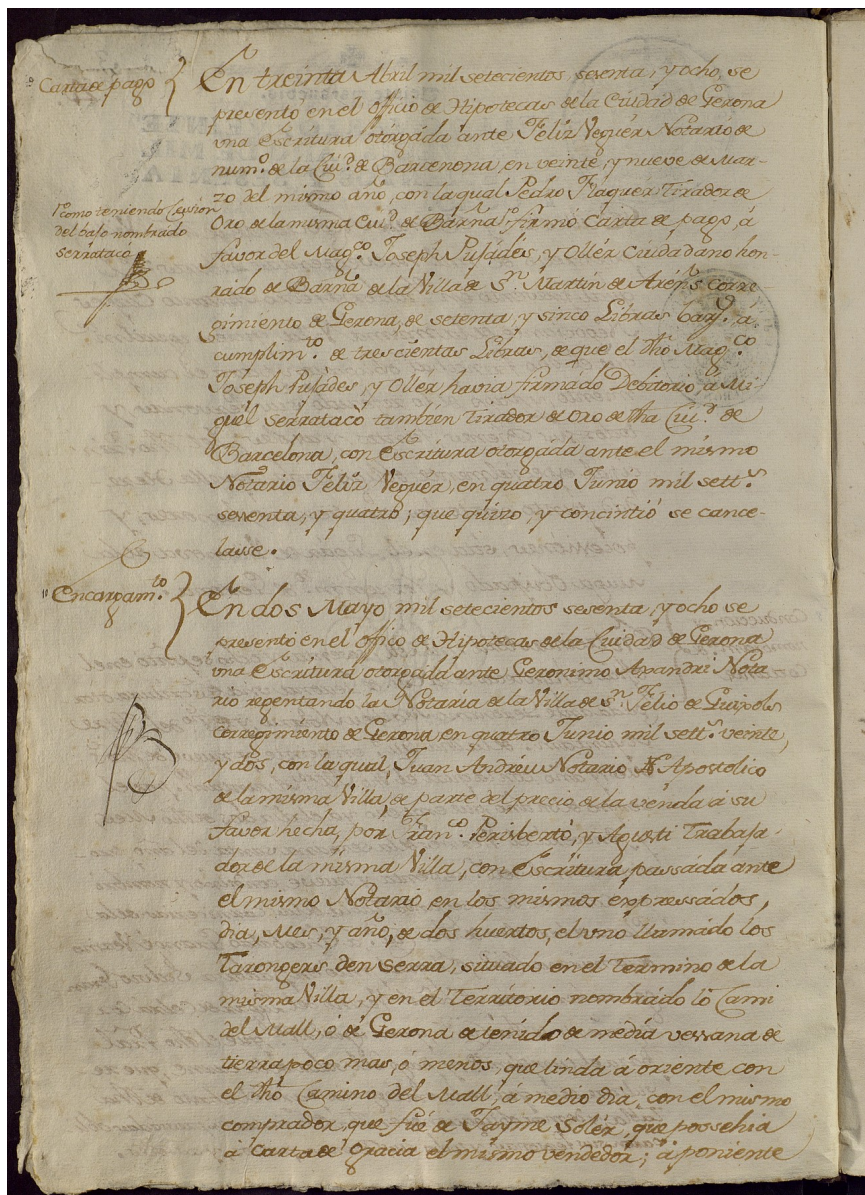 Carta de pago
En treinta Abril mil setecientos sesenta, y ocho, se
presentó en el Officio de Hipotecas de la Ciudad de Gerona
vna Escritura otorgáda ánte Feliz Veguér Notario de
num.º de la Ciu.d de Barcenona, en veinte, y nueve de Mar-
zo del mismo año, con la qual Pedro Flaquer Tirador de
Oro de la misma Ciu.d de Barña 1.º firmó Carta de pago, á
favor del Mag.co Joseph Pujádes, y Ollér Ciudadano hon-
rado de Barña de la Villa de S.n Martin de Aréñs corre-
gimiento de Gerona, de setenta, y sinco Libras barj.s á
cumplim.to de trescientas Libras, de que el dho Mag.co
Joseph Pujádes, y Ollér havia firmádo Debitorio, á Mi-
guél Serratacó tambien Tirador de Oro de dha Ciu.d de
Barcelona, con Escritura otorgáda ante el mismo
Notario Feliz Veguer, en quatro Junio mil sett.s
sesenta, y quatro; que quizo, y concintió se cance-
lasse.
1.º como teniendo Cession
del bajo nombrado
serratacó
Encargam.to
En dos Mayo mil setecientos sesenta, y ocho se
presentó en el Officio de Hipotecas de la Ciudad de Gerona
vna Escritura otorgáda ante Geronimo Axandri Nota
rio regentando la Notaria de la Villa de S.n Felio de Guixols
Corregimiento de Gerona, en quatro Junio mil sett.s veinte,
y dos, con la qual, Juan Andréu Notario Apostolico
de la misma Villa, de parte del precio, de la vénda á su
favor hecha, por Fran.co Perisbertó, y Agusti Trabaja-
dor de la misma Villa, con Escritura passáda ante
el mismo Notario en los mismos expressádos,
dia, Mes, y año, de dos huertos, el vno llamádo los
Tarongers den Serra, situado en el Termino de la
misma Villa, y en el Territorio nombrádo lo Cami
del Mall, ó de Gerona de tenido de media vessana de
tierra poco mas, ó menos, que linda á oriente con
el dho Camino del Mall, á medio dia, con el mismo
comprador, que fué de Jayme Solér, que possehia
á Carta de Gracia el mismo vendedor; á poniente